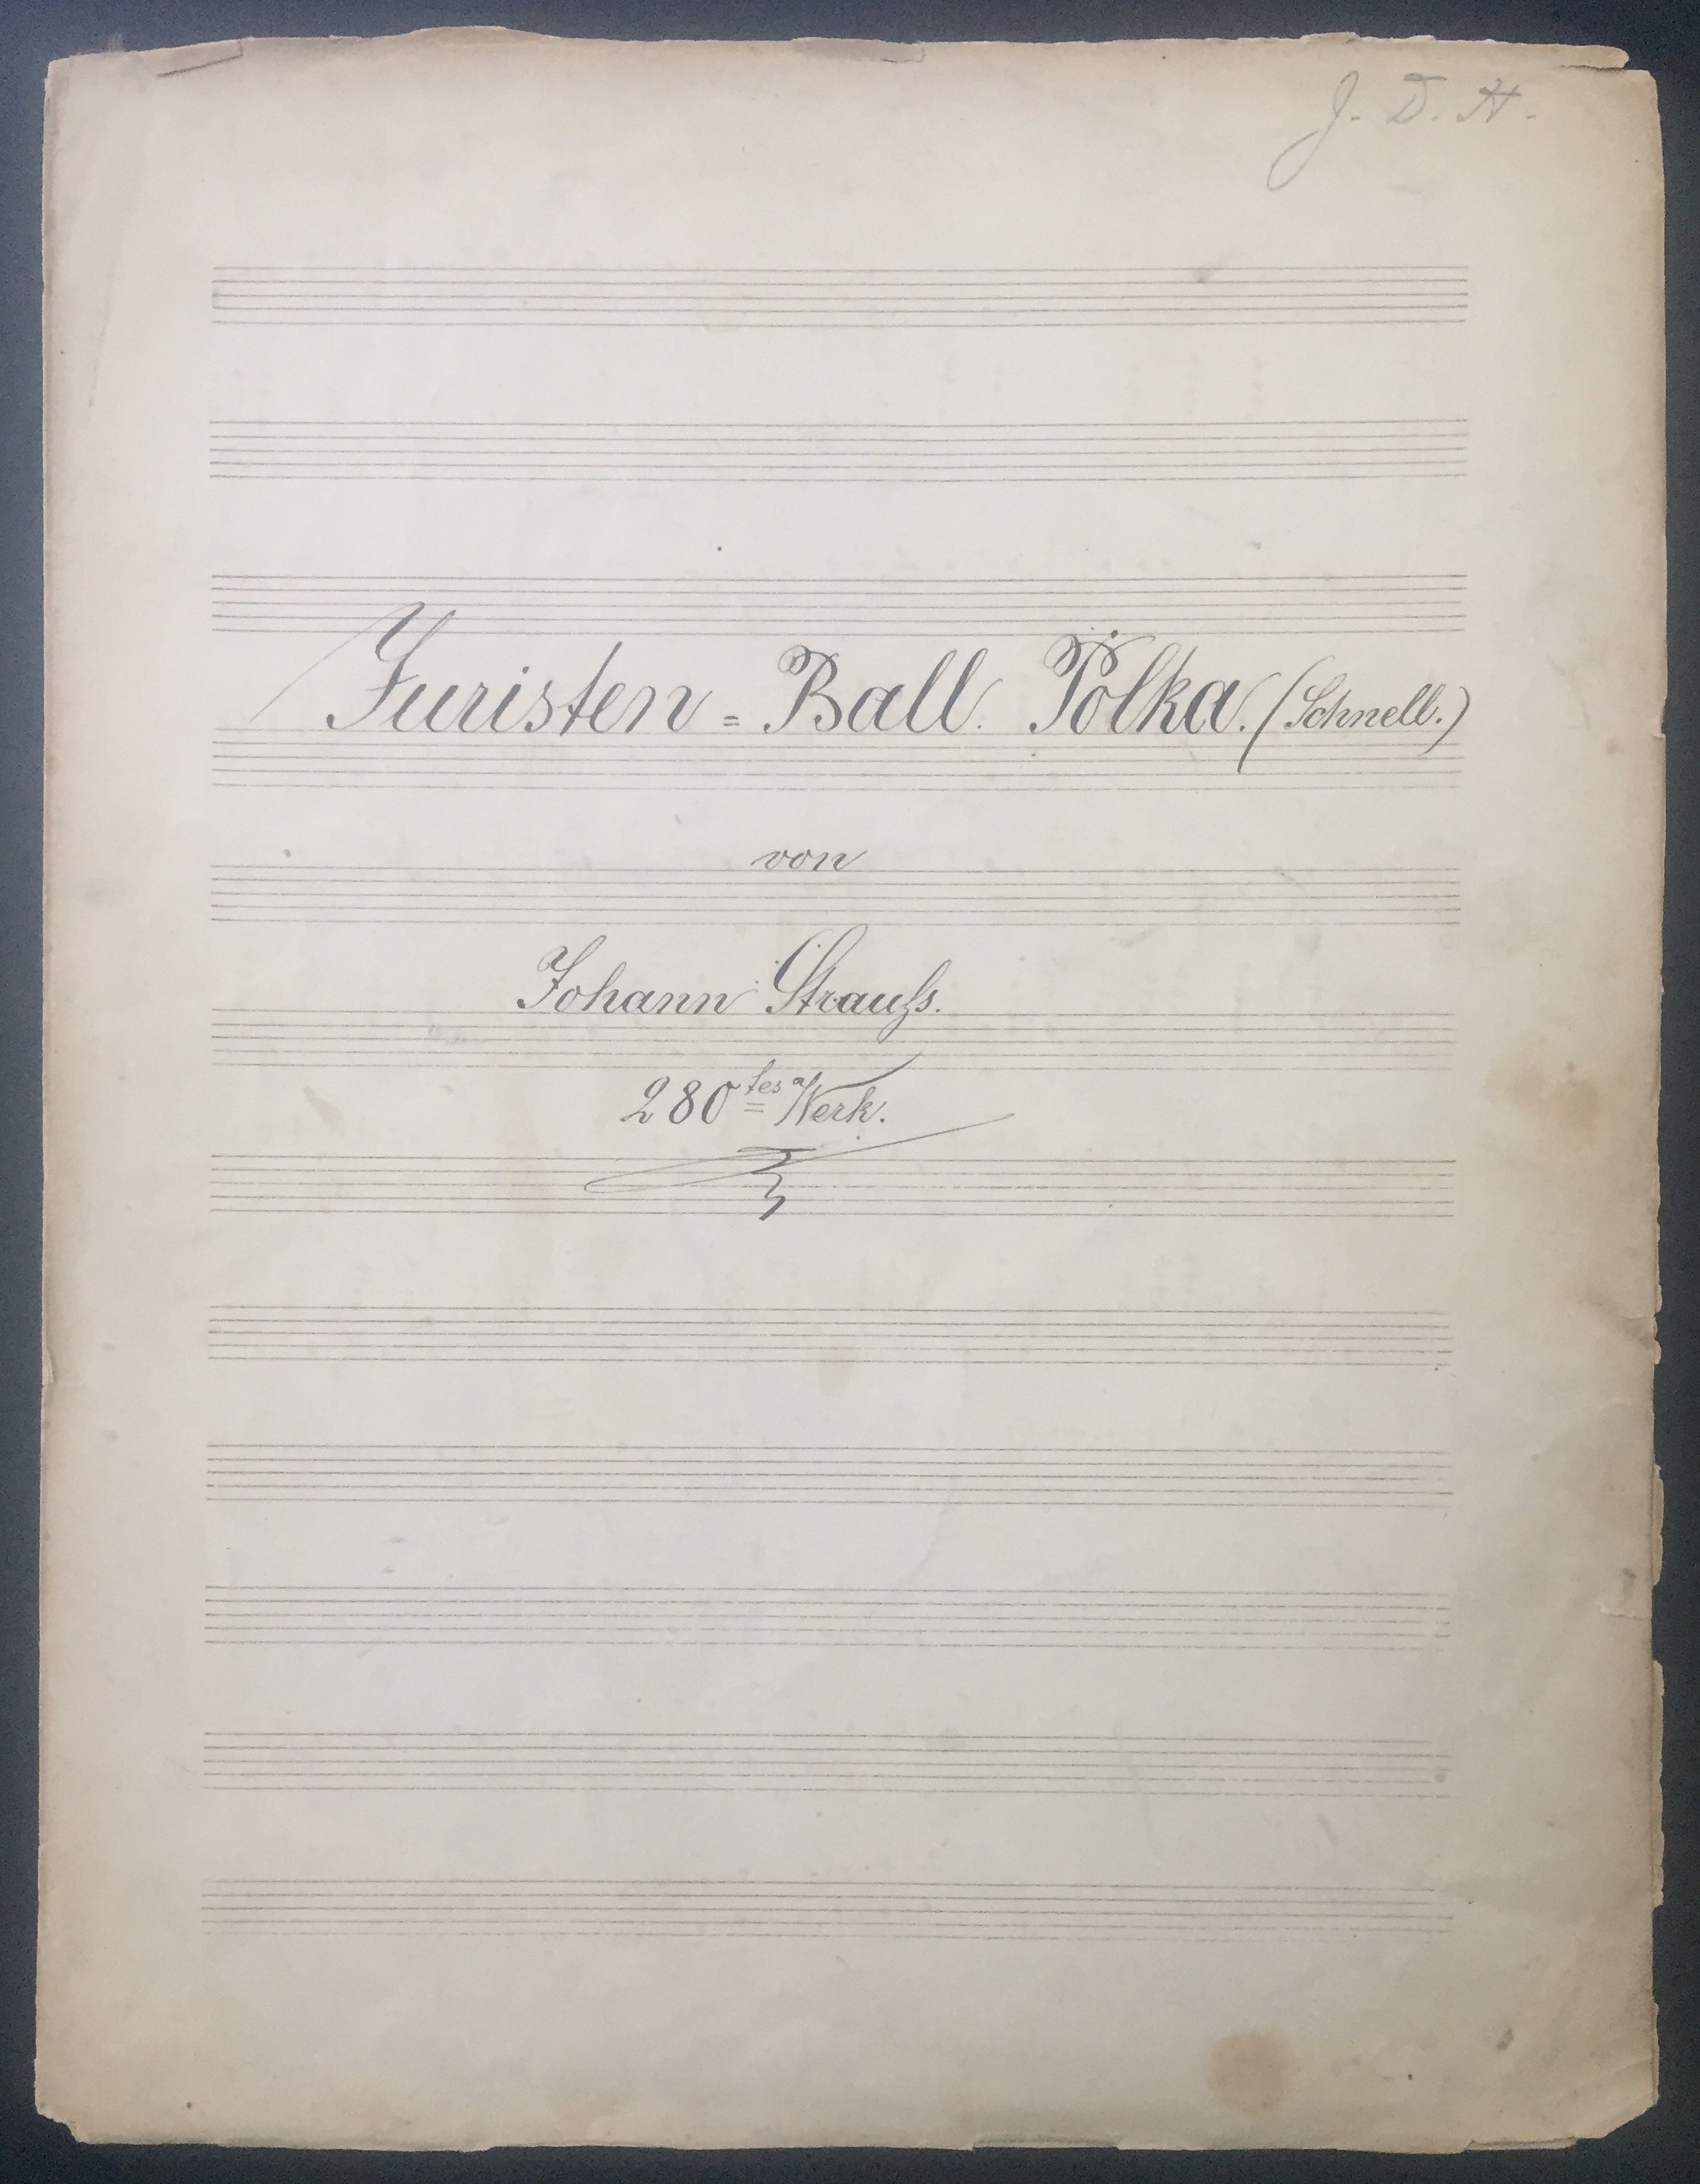 J. D. H.
Juristen = Ball. Polka. (Schnell.)
von
Johann Strauſs.
280tes Werk.